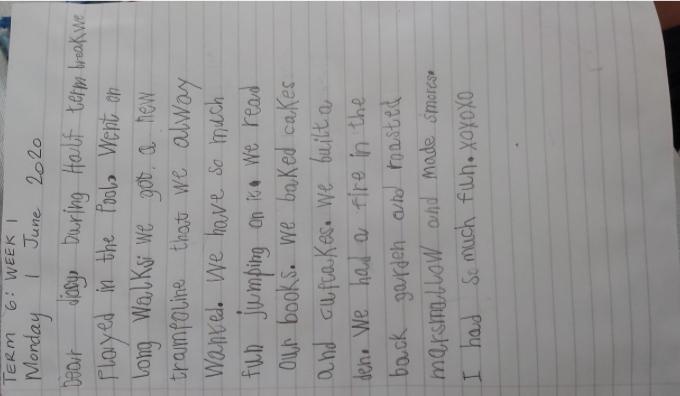 TERM 6: WEEK 1
Monday 1 June 2020
Dear diary, During Half term break we
Played in the Pool. Went on
long Walks. we got a new
trampoline that we alway
Wanted. We have so much
fun jumping on it. we read
our books. we baked cakes
and cupcakes. we built a
den. We had a fire in the
back garden and roasted
marsmallow and made smores.
I had so much fun. xoxoxo